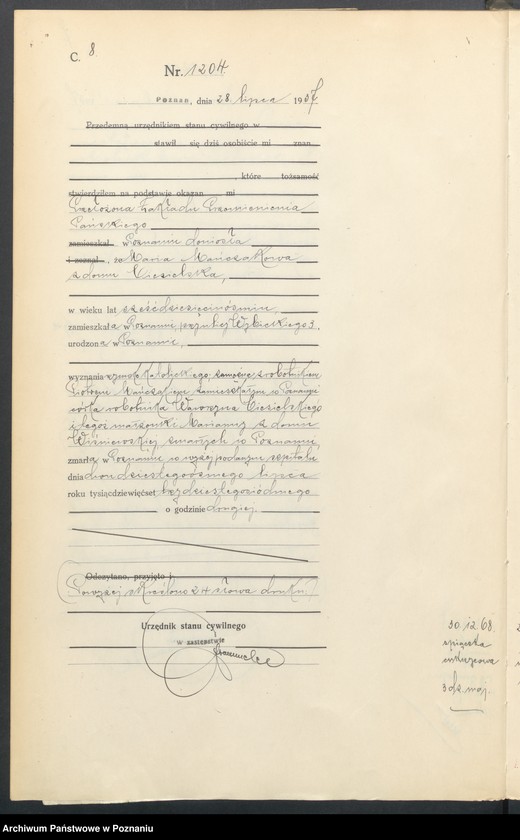 C. 8
Nr. 1204
Poznań, dnia 28 lipca 1937
Przedemną urzędnikiem stanu cywilnego w
stawił się dziś osobiście mi znan
, które tożsamość
stwierdziłem na podstawie okazan mi
Przełożona Zakładu Przemienienia
Pańskiego
zamieszkał w Poznaniu doniosła
i zeznał, że Maria Mańczakowa
z domu Ciesielska,
w wieku lat sześćdziesięciuośmiu,
zamieszkała w Poznaniu, Wybickiego 3,
urodzona w Poznaniu,
wyznania rzymskokatolickiego, zamężna z robotnikiem
Piotrem Mańczakiem zamieszkałym w Poznaniu
córka robotnika Wawrzyna Ciesielskiego
i jego małżonki Marianny z domu
Wiśniewskiej zmarłych w Poznaniu
zmarła w Poznaniu w wyżej podanym szpitalu
dnia dwudziestegoósmego lipca
roku tysiącdziewięćset trzydziestegosiódmego
o godzinie drugiej.
Odczytano, przyjęto i
Powyżej skreślono 24 słowa druku
Urzędnik stanu cywilnego
w zastępstwie
30.12.68.
3 dz. moj.
Archiwum Państwowe w Poznaniu